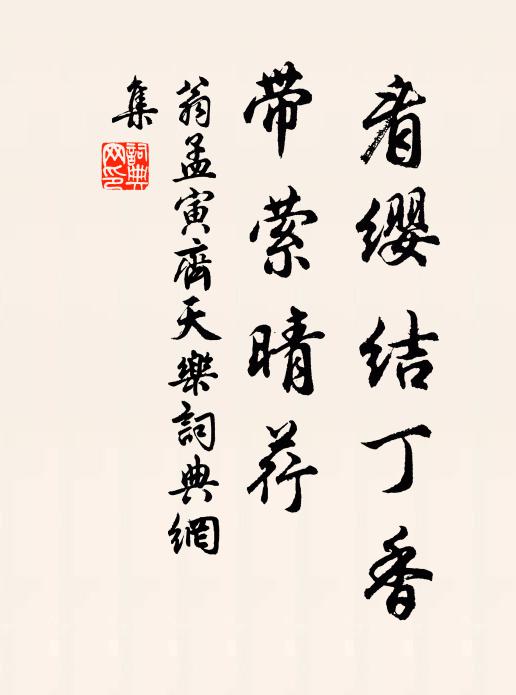 看缨结丁香
带萦晴荇
翁孟寅齊天樂詞典網
集
詞典
网印